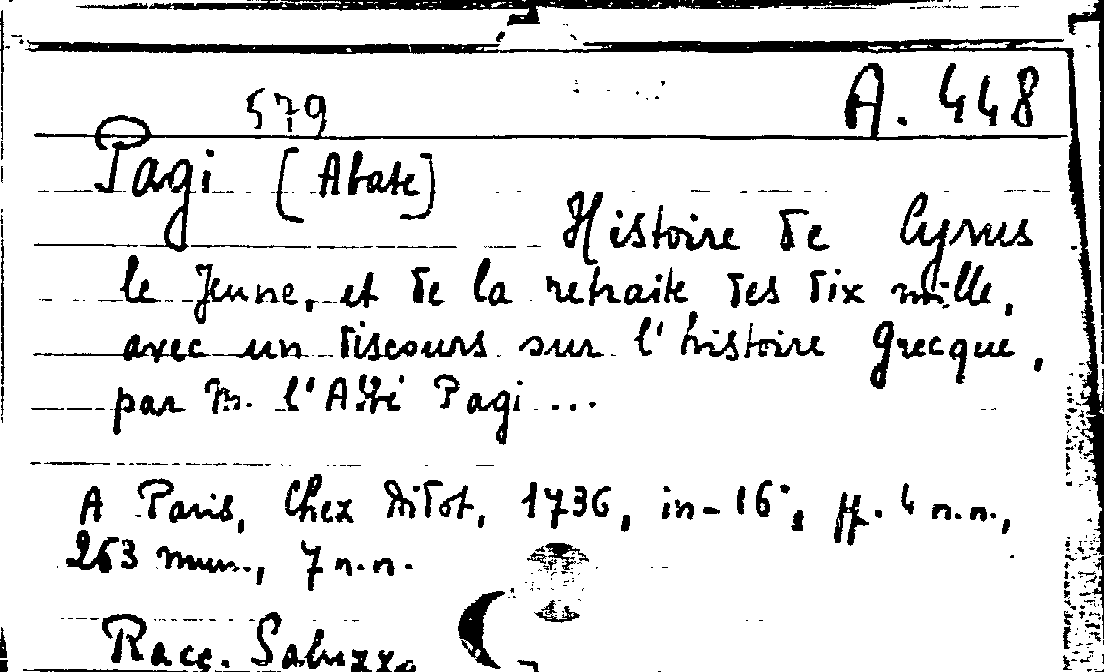 A. 448
579
Pagi [Abate]
Histoire de Cyrus
le Jeune, et de la retraite des dix mille,
avec un discours sur l'histoire Grecque,
par M. l'Abbé Pagi ...
A Paris, Chez Didot, 1736, in-16°, ff. 4 n.n.,
263 num., 7 n.n.
Racc. Saluzzo